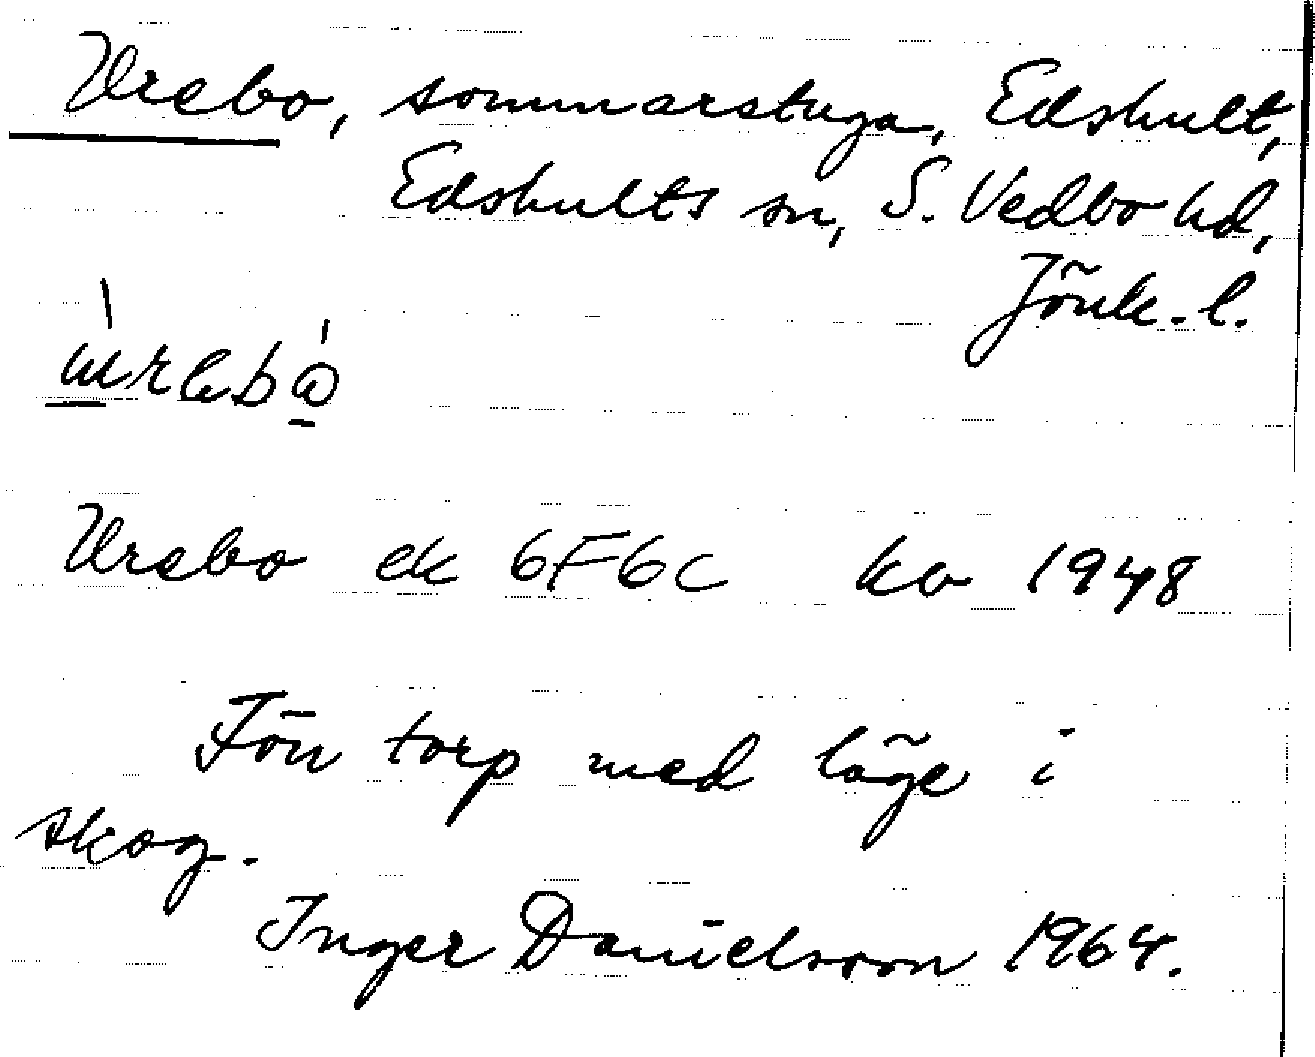 Vrebo, sommarstuga, Edshult,
Edshults sn, S. Vedbo hd,
Jönk. l.
Vrebo ek 6F6c ka 1948
F ön torp med läge i
skog.
Inger Danielsson 1964.